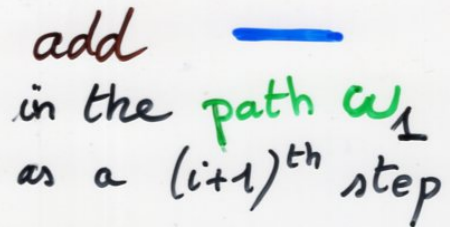 add
in the path ω₁
as a (i+1)ᵗʰ step